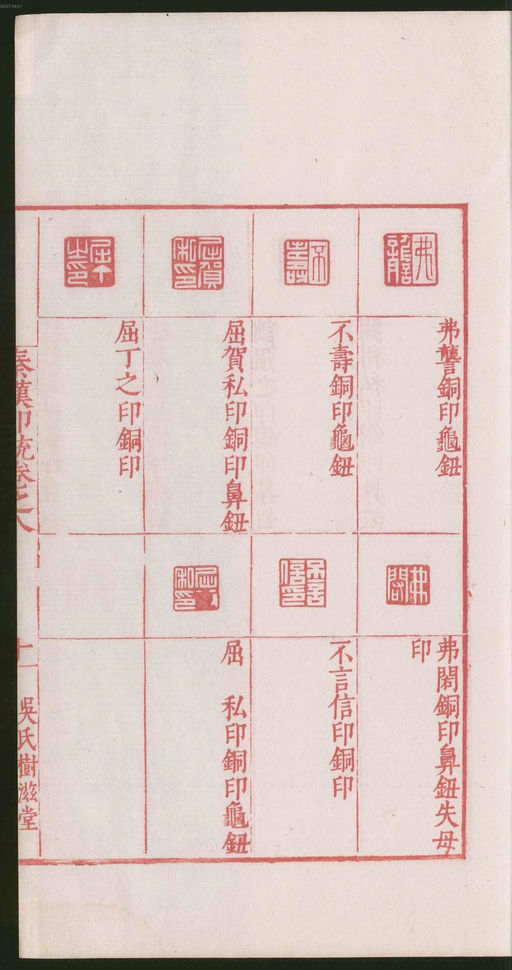 弗讋銅印龜鈕
不壽銅印龜鈕
屈賀私印銅印鼻鈕
屈丁之印銅印
弗閎銅印鼻鈕失母
印
不言信印銅印
屈　私印銅印龜鈕
秦漢印統卷之八
十一
吳氏樹滋堂